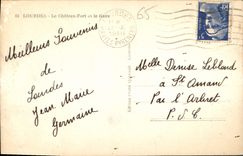 61 LOURDES - Le Château-Fort et la Gare
65
Meilleurs Souvenirs
de
Lourdes
Jean Marie
Germaine
Melle Denise Leblond
à St Amand
Par l'Arbret
P.d.C